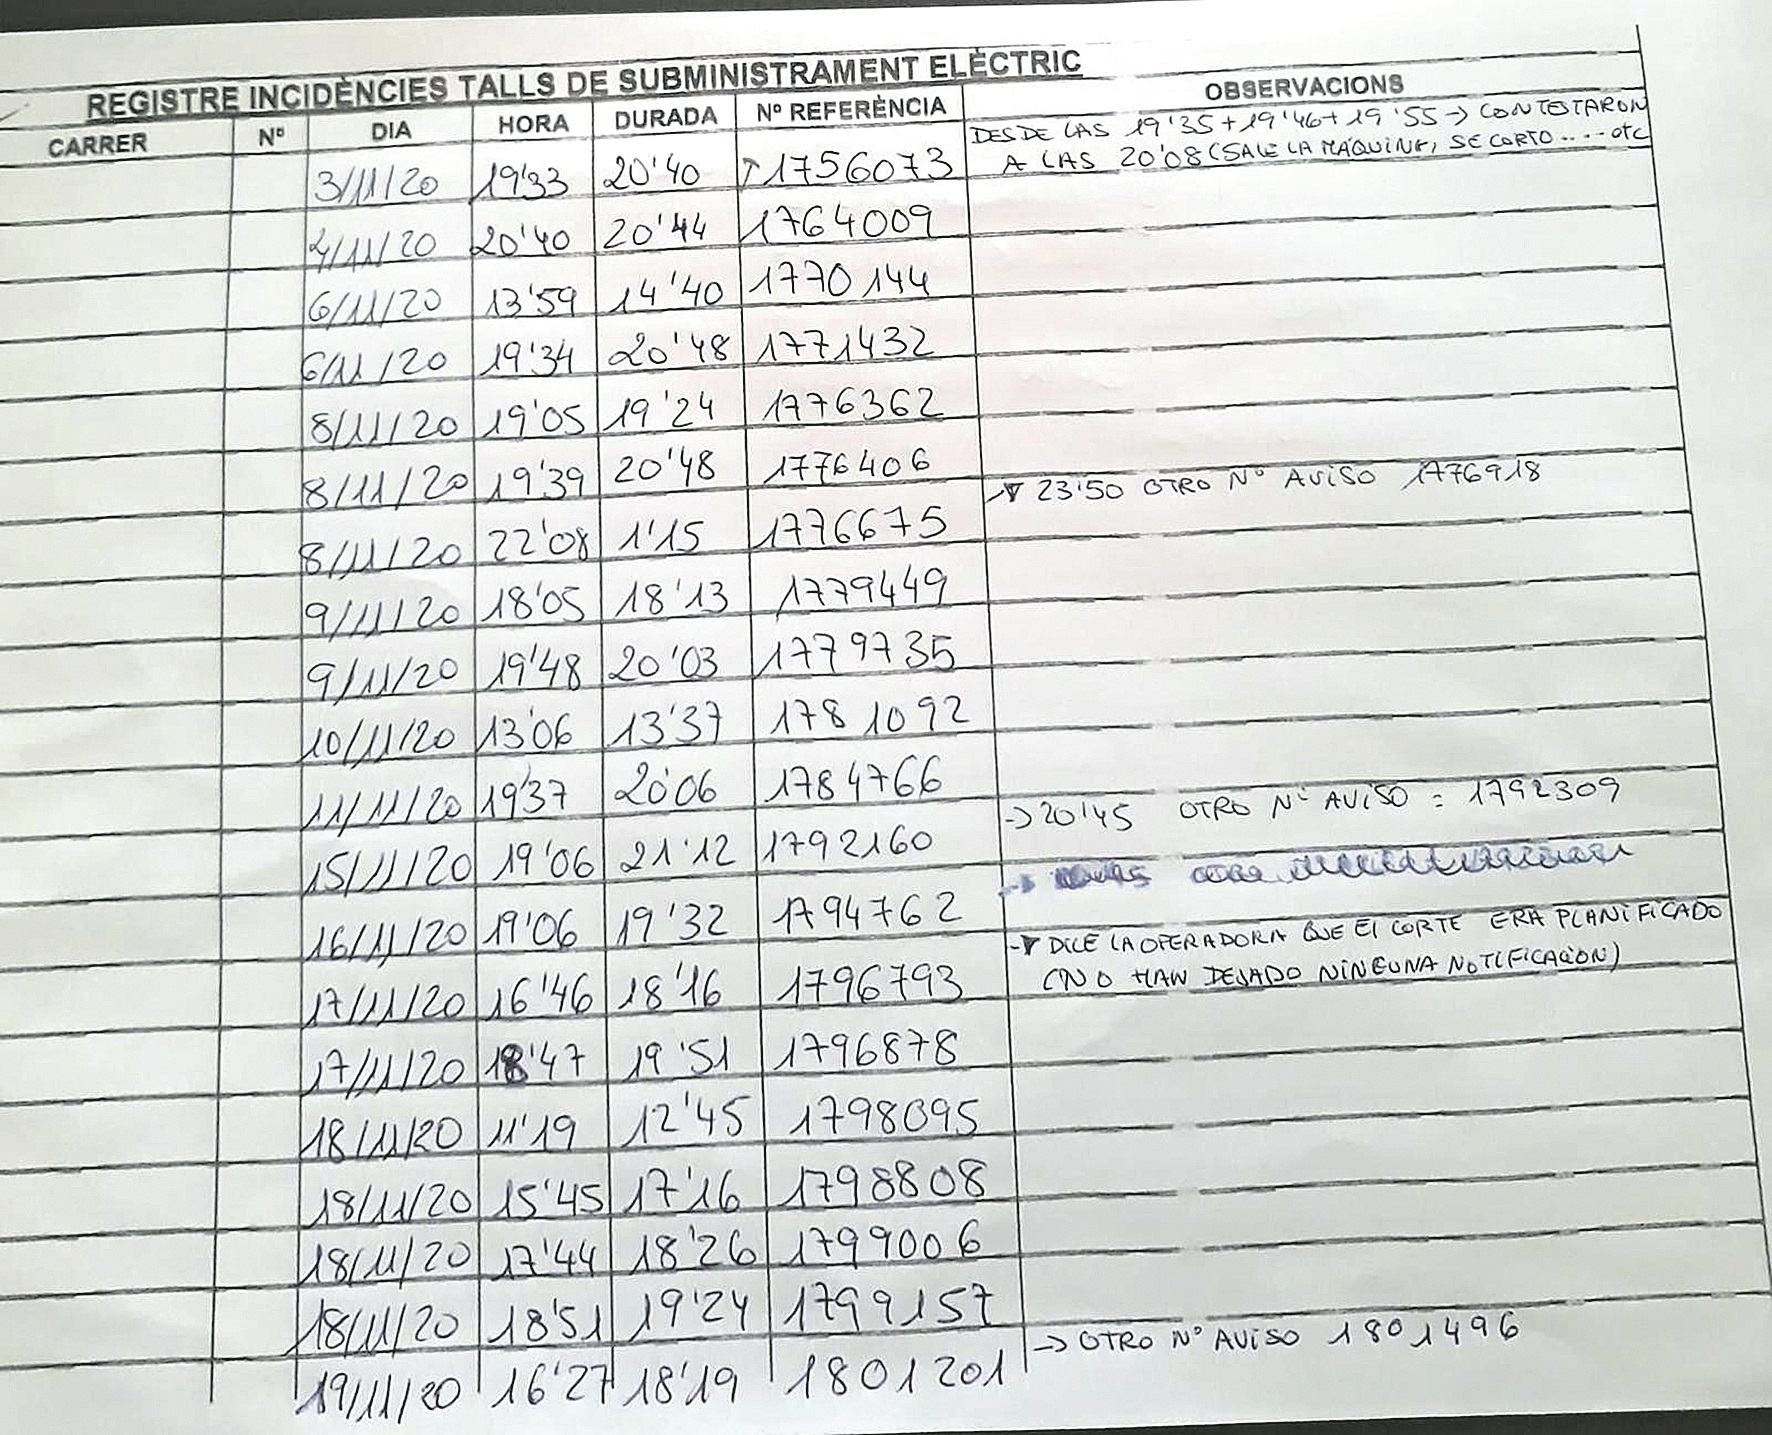 REGISTRE INCIDÈNCIES TALLS DE SUBMINISTRAMENT ELÈCTRIC
CARRER Nº DIA HORA DURADA Nº REFERÈNCIA OBSERVACIONS
3/11/20 19'33 20'40 1756073 DESDE LAS 19'35+19'46+19'55→ CONTESTARON
A LAS 20'08 (SALE LA MÁQUINA, SE CORTO.....etc
4/11/20 20'40 20'44 1764009
6/11/20 13'59 14'40 1770144
6/11/20 19'34 20'48 1771432
8/11/20 19'05 19'24 1776362
8/11/20 19'39 20'48 1776406
8/11/20 22'08 1'15 1776675 → 23'50 OTRO Nº AVISO 1776918
9/11/20 18'05 18'13 1779449
9/11/20 19'48 20'03 1779735
10/11/20 13'06 13'37 1781092
11/11/20 19'37 20'06 1784766
15/11/20 19'06 21'12 1792160 → 20'45 OTRO Nº AVISO = 1792309
16/11/20 19'06 19'32 1794762
17/11/20 16'46 18'16 1796793 → DICE LA OPERADORA QUE El CORTE ERA PLANIFICADO
(NO HAN DEJADO NINGUNA NOTIFICACIÓN)
17/11/20 18'47 19'51 1796878
18/11/20 11'19 12'45 1798095
18/11/20 15'45 17'16 1798808
18/11/20 17'44 18'26 1799006
18/11/20 18'51 19'24 1799157
19/11/20 16'27 18'19 1801201 → OTRO Nº AVISO 1801496